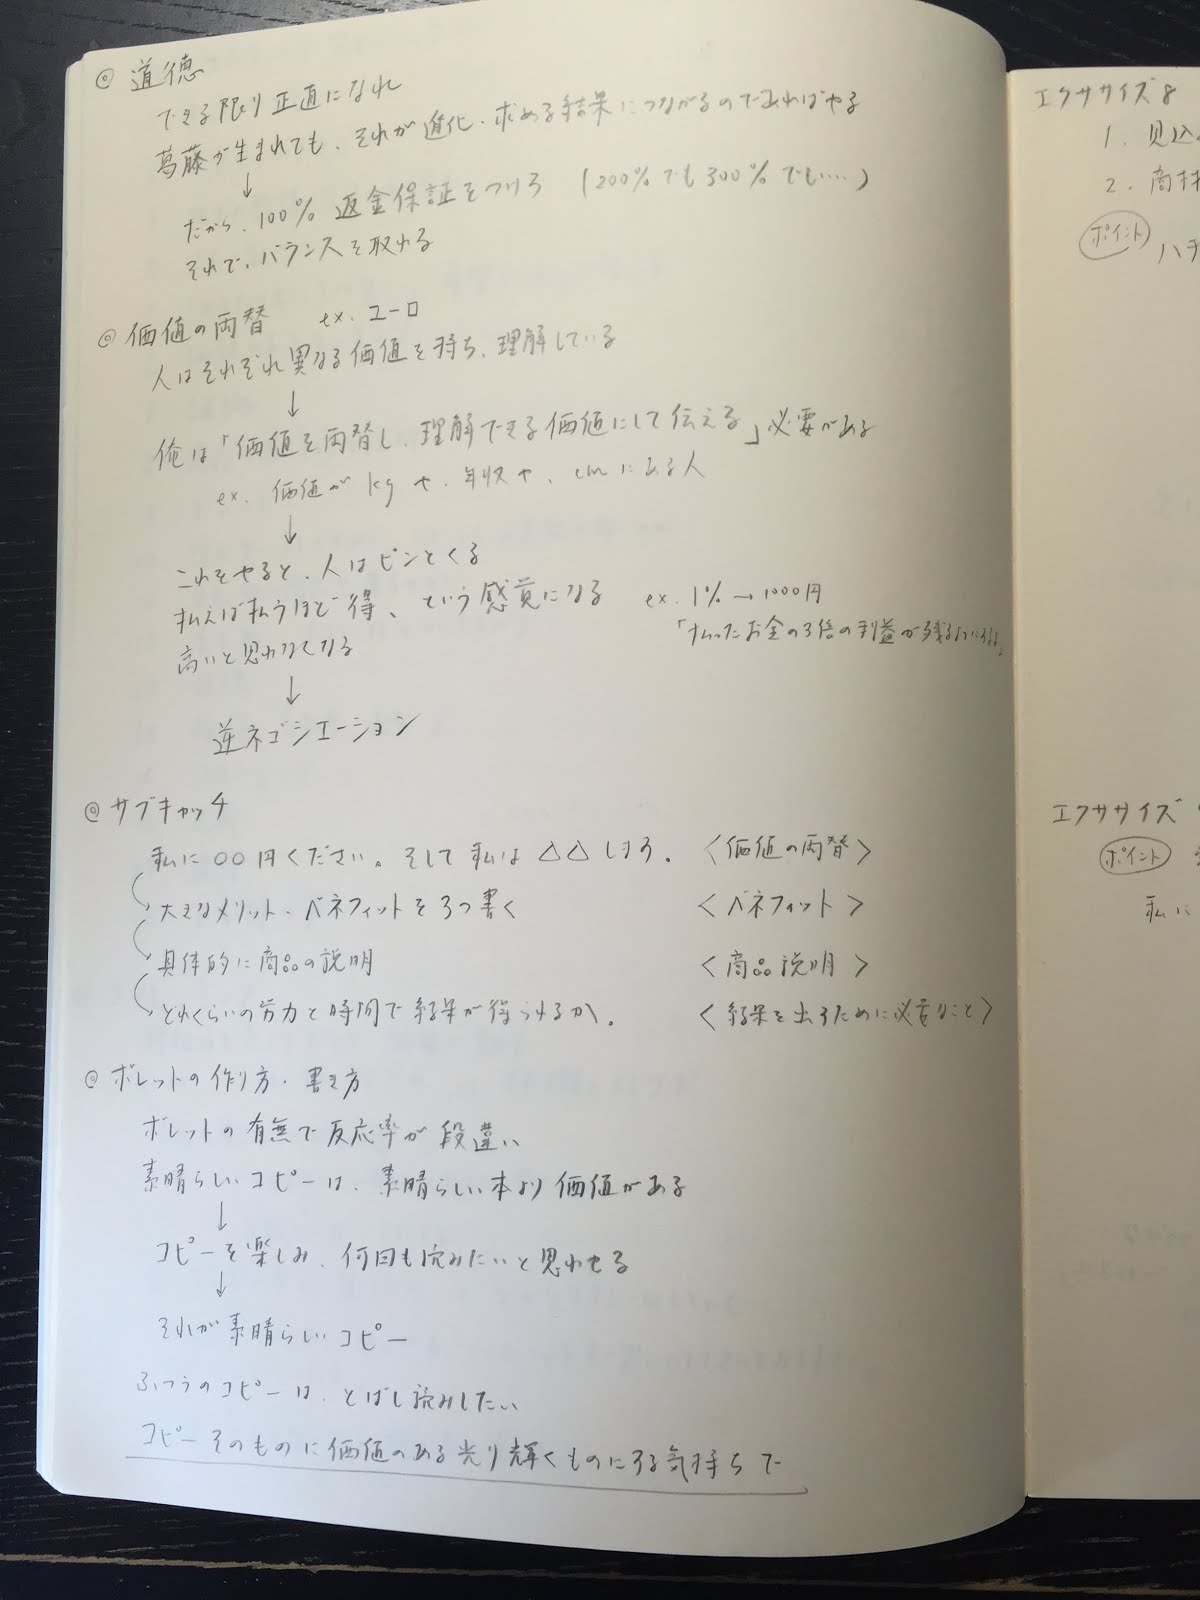 ◎ 道徳
できる限り正直になれ
葛藤が生まれても、それが進化・求める結果につながるのであればやる
↓
だから、100% 返金保証をつけろ (200%でも300%でも…)
それで、バランスを取れる
◎ 価値の両替 ex. ユーロ
人はそれぞれ異なる価値を持ち、理解している
↓
俺は「価値を両替し、理解できる価値にして伝える」必要がある
ex. 価値が kg や、年収や、cm にある人
↓
これをやると、人はピンとくる
払えば払うほど得、という感覚になる ex. 1% → 1000円
「払ったお金の3倍の利益が残る
高いと思わなくなる
↓
逆ネゴシエーション
◎ サブキャッチ
私に○○円ください。そして私は△△しよう。 〈価値の両替〉
大きなメリット・ベネフィットを3つ書く 〈ベネフィット〉
具体的に商品の説明 〈商品説明〉
どれくらいの労力と時間で結果が得られるか。 〈結果を出すために必要なこと〉
◎ ボレットの作り方・書き方
ボレットの有無で反応率が段違い
素晴らしいコピーは、素晴らしい本より価値がある
↓
コピーを楽しみ、何回も読みたいと思わせる
↓
それが素晴らしいコピー
ふつうのコピーは、とばし読みしたい
コピーそのものに価値のある光り輝くものにする気持ちで
エクササイズ8
1. 見込
2. 商材
ポイント
ハチ
エクササイズ
ポイント
私に